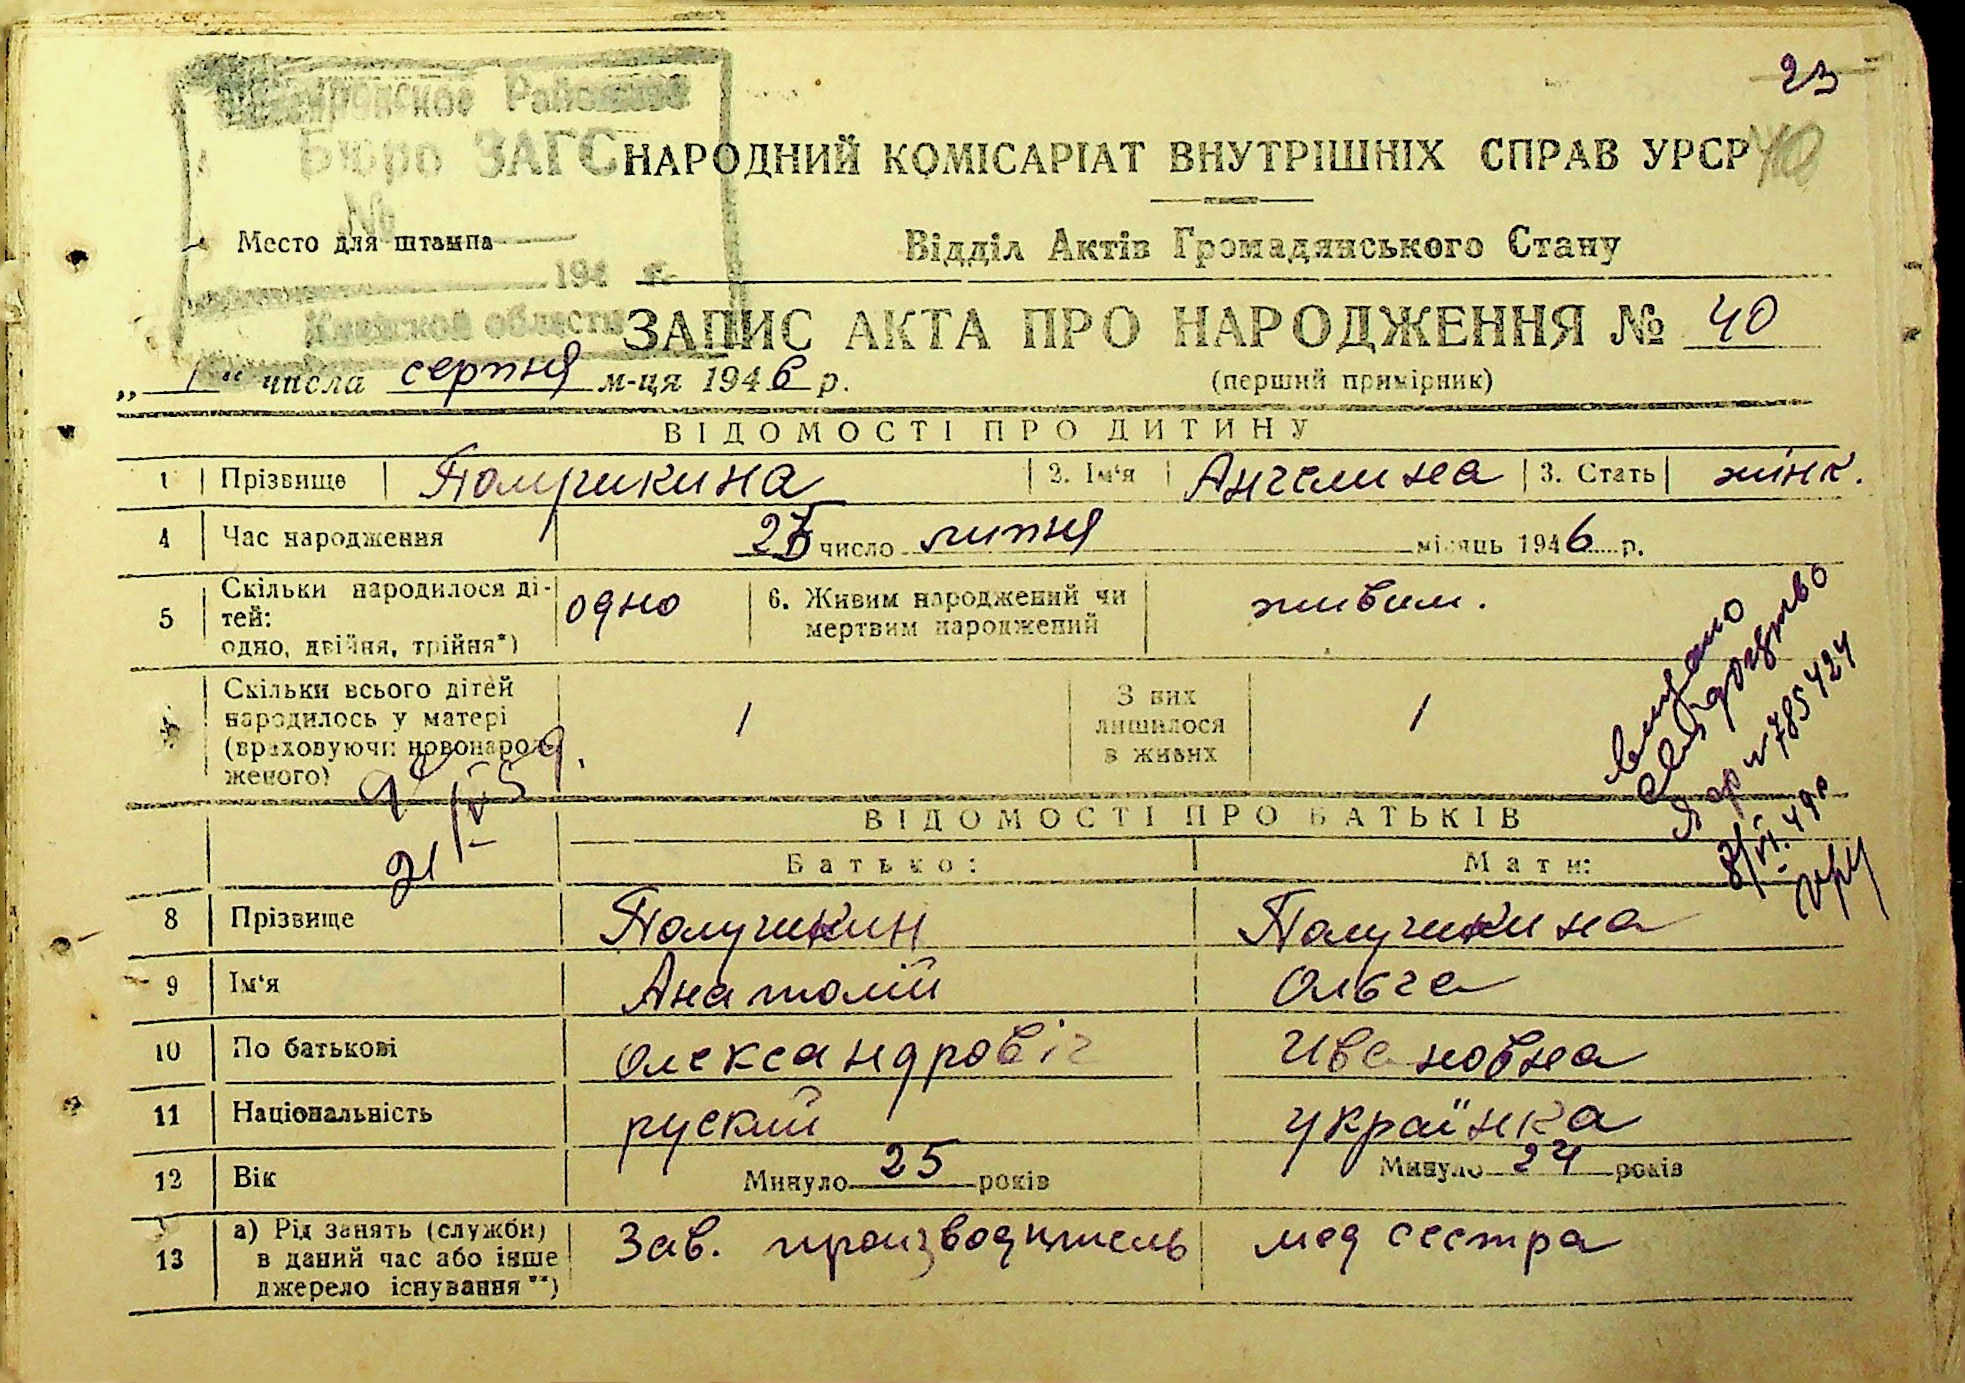 23
Районное
Бюро ЗАГС
№
194 г.
области
40
НАРОДНИЙ КОМІСАРІАТ ВНУТРІШНІХ СПРАВ УРСР
Место для штампа
Відділ Актів Громадянського Стану
ЗАПИС АКТА ПРО НАРОДЖЕННЯ № 40
„ 1 “ числа серпня м-ця 1946 р.
(перший примірник)
ВІДОМОСТІ ПРО ДИТИНУ
1 Прізвище Получикина 2. Ім‘я Ангелина 3. Стать жінк.
4 Час народження число липня місяць 1946 р.
5 Скільки народилося ді-
тей:
одно, двійня, трійня*) одно 6. Живим народжений чи
мертвим народжений живим.
Скільки всього дітей
народилось у матері
(враховуючи новонарод-
женого) 1 З них
лишилося
в живих 1
видано
свидоцтво
785424
ВІДОМОСТІ ПРО БАТЬКІВ
Батько: Мати:
8 Прізвище Получикин Получикина
9 Ім‘я Анатолій Ольга
10 По батькові Олександровіч Ивановна
11 Національність руский українка
12 Вік Минуло 25 років Минуло 24 років
13 а) Рід занять (служби)
в даний час або інше
джерело існування**) Зав. производитель мед сестра